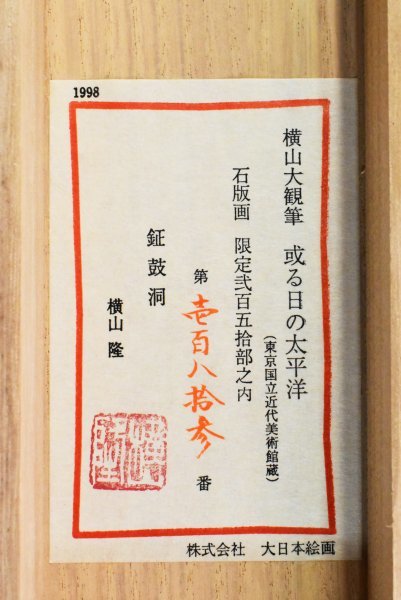 1998
横山大観筆 或る日の太平洋
(東京国立近代美術館蔵)
石版画 限定弐百五拾部之内
第壱百八拾参番
鉦鼓洞
横山 隆
株式会社 大日本絵画